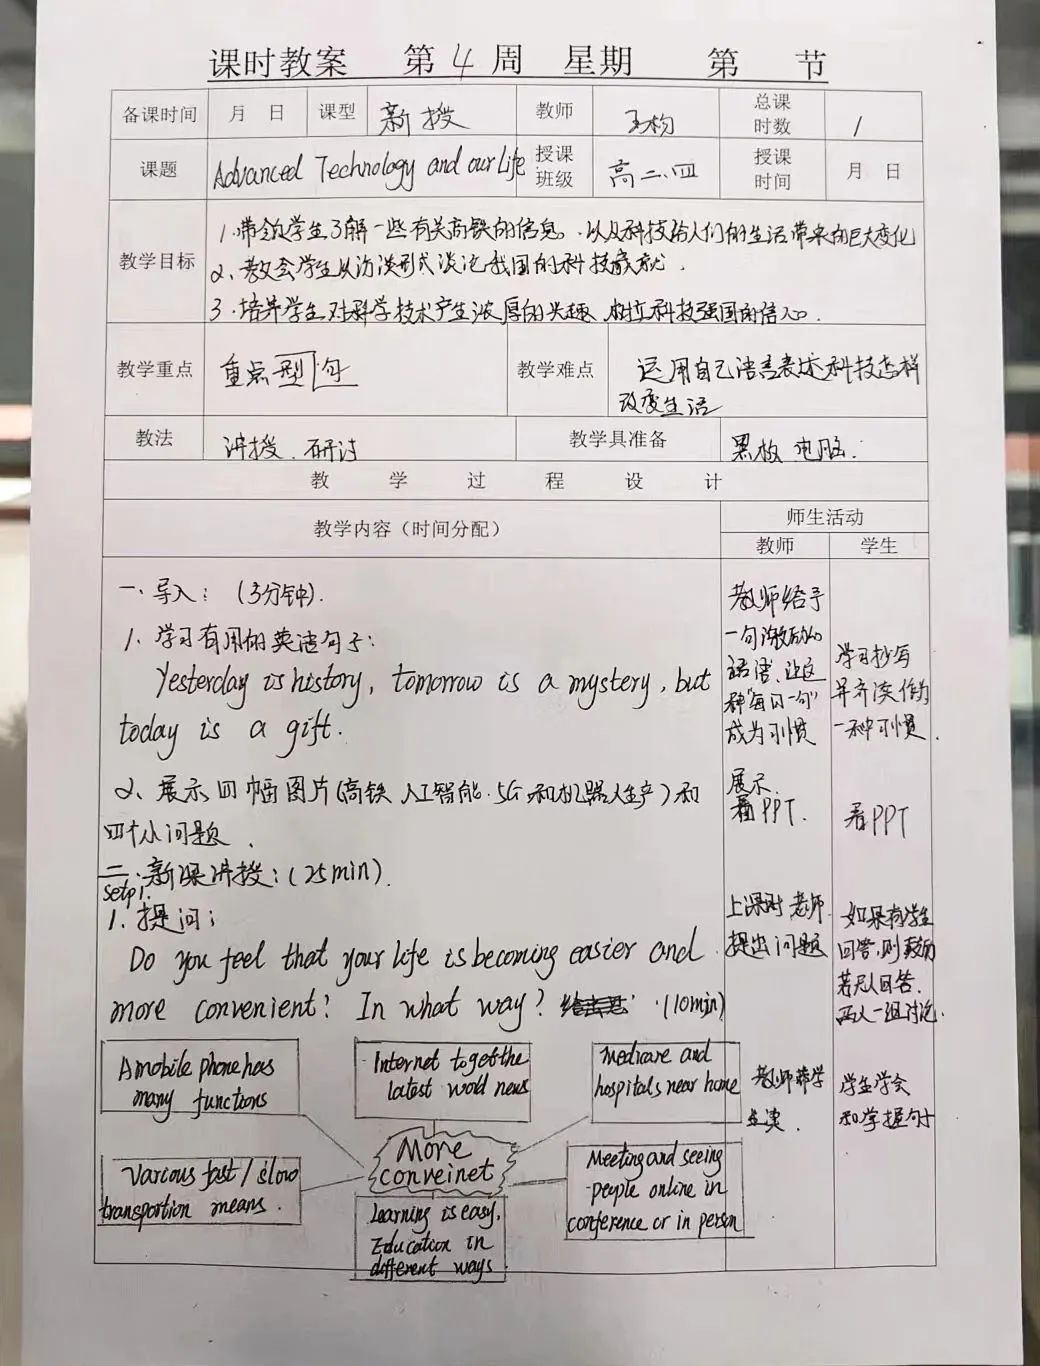 课时教案 第 4 周 星期 第 节
备课时间 月 日 课型 新授 教师 总课时数 1
课题 Advanced Technology and our Life 授课班级 高二.四 授课时间 月 日
教学目标
1.带领学生了解一些有关高铁的信息.以及科技给人们的生活带来的巨大变化
2、教会学生以访谈形式谈论我国的科技成就.
3.培养学生对科学技术产生浓厚的兴趣、树立科技强国的信心.
教学重点 重点句型
教学难点 运用自己语言表达科技怎样
改变生活
教法 讲授.研讨 教学具准备 黑板 电脑.
教 学 过 程 设 计
教学内容（时间分配） 师生活动
教师 学生
一、导入：(3分钟).
1、学习有用的英语句子:
Yesterday is history, tomorrow is a mystery, but
today is a gift.
教师给予
一句激励的
话语、让这
种"每日一句"
成为习惯
学习抄写
并齐读作为
一种习惯.
2、展示四幅图片(高铁 人工智能.5G和机器人生产)和
四个小问题.
展示.
看PPT.
看PPT
二.新课讲授:(25min).
setp1.
1.提问:
Do you feel that your life is becoming easier and
more convenient? In what way? (10min)
上课时老师
提出问题
如果有学生
回答,则鼓励
若无人回答.
两人一组讨论.
A mobile phone has
many functions
Internet to get the
latest world news
Medicare and
hospitals near home
教师带学
生读.
学生学会
和掌握句子
Various fast/slow
transportion means.
More
conveinet
Meeting and seeing
people online in
conference or in person
Learning is easy.
Education in
different ways